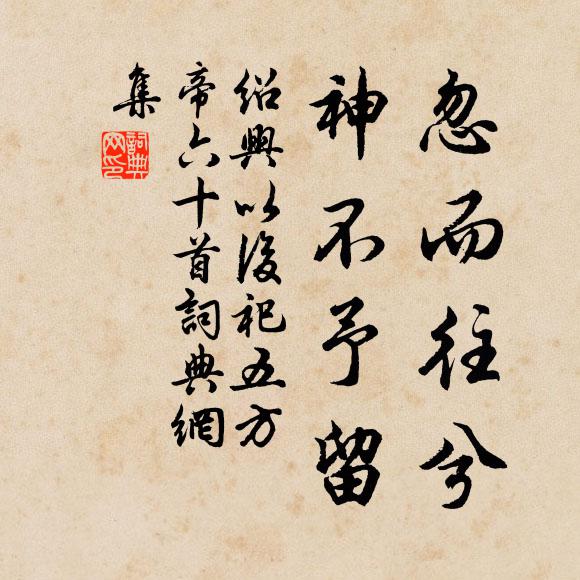 忽而往兮
神不予留
紹興以後祀五方
帝六十首詞典網
集
詞典網印